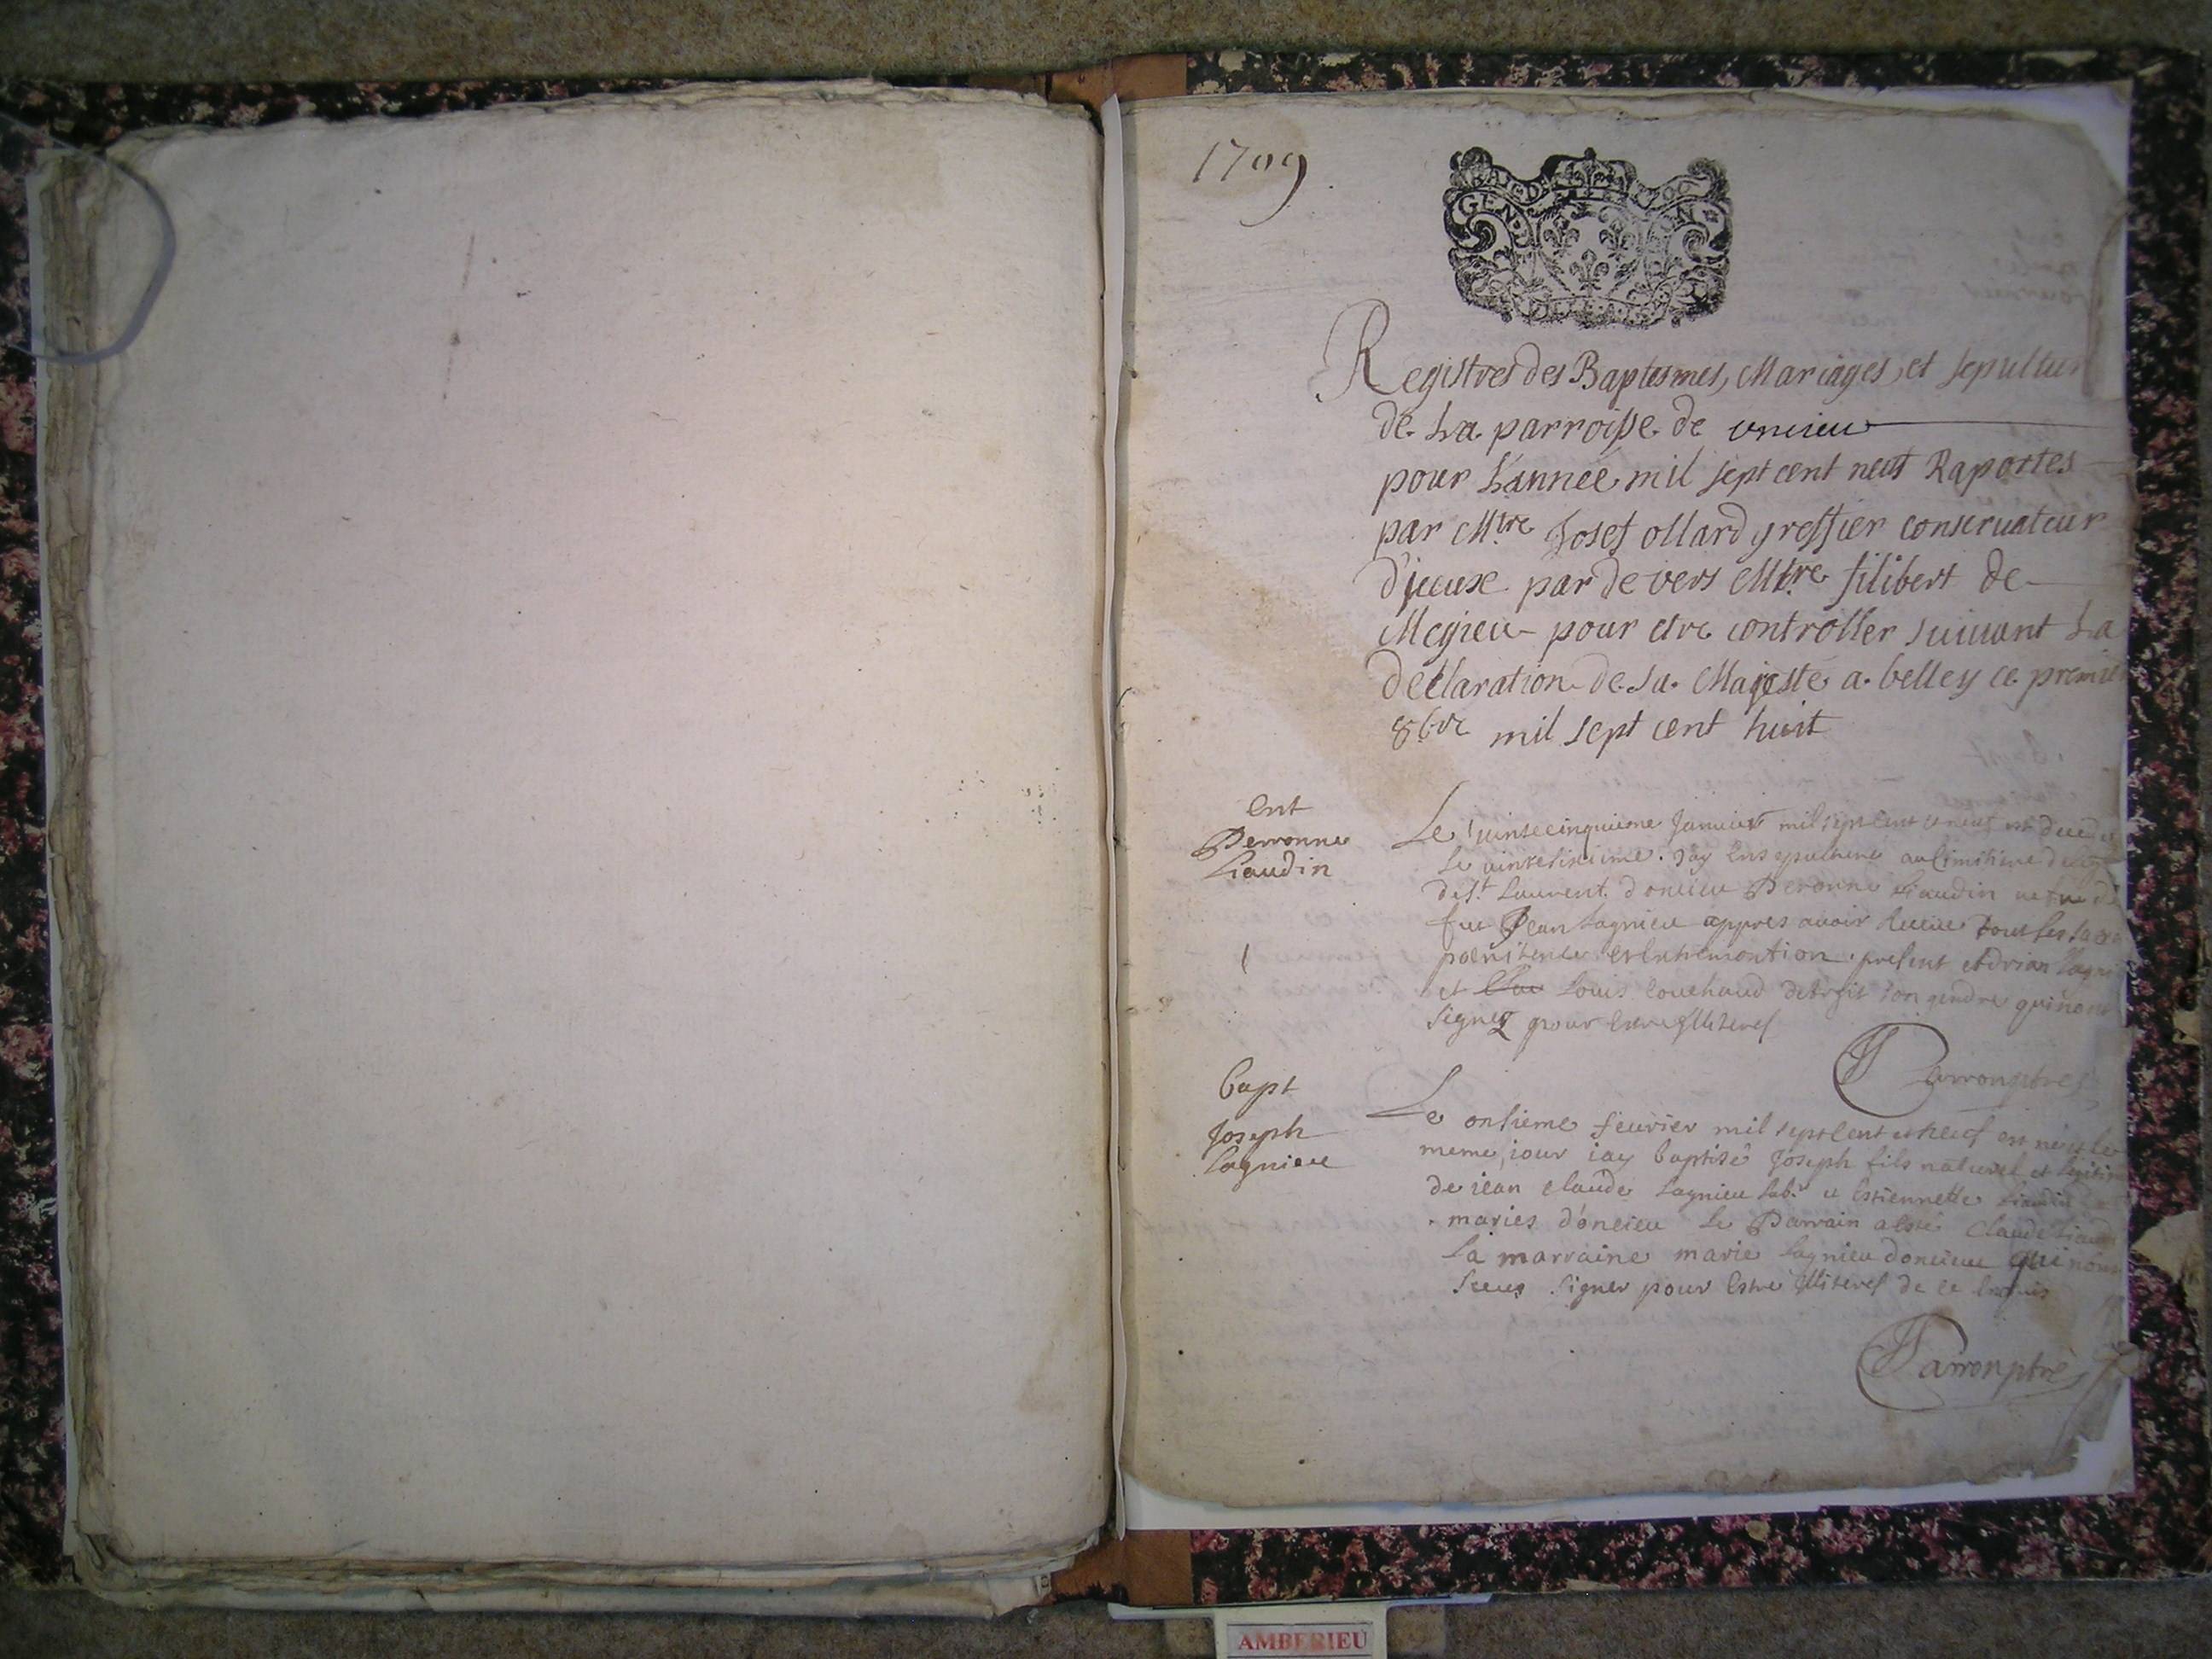 1709
GEN
Registres des Baptesmes, Mariages, et sepultur
de La parroisse de oncieu
pour L'année mil sept cent neuf Raportes
par Mtre Josef ollard greffier conservateur
d'jceux par de vers Mtre filibert de
Megieu pour etre controller suivant La
declaration de sa Majesté a belley ce premier
8bre mil sept cent huit
Ent
Perronne
Liaudin
Le vinte cinquieme Janvier mil sept cent et neuf est decede et
le vintesixieme Jay Ensepulturé au Cimitiere de
de St Laurent d'oncieu Peronne Liaudin
feu Jean Lagnieu appres avoir Receue tout ses
poenitence et Extremontion present Adrian Lagni
et Louis Couchaud son gendre qui nont
signez pour Estre Illiteres
Parron ptre
Bapt
Joseph
Lagnieu
Le onsieme feurier mil sept Cent et neuf est né et le
meme iour iay baptisé Joseph fils naturel et legitim
de iean claude Lagnieu Lab. et Estiennette Liaudin
maries d'oncieu le Parrain a esté Claude Liaud
La marraine marie Lagnieu doncieu qui nont
sceus signer pour Estre Illiteres de ce Enquis
Parron ptre
AMBERIEU